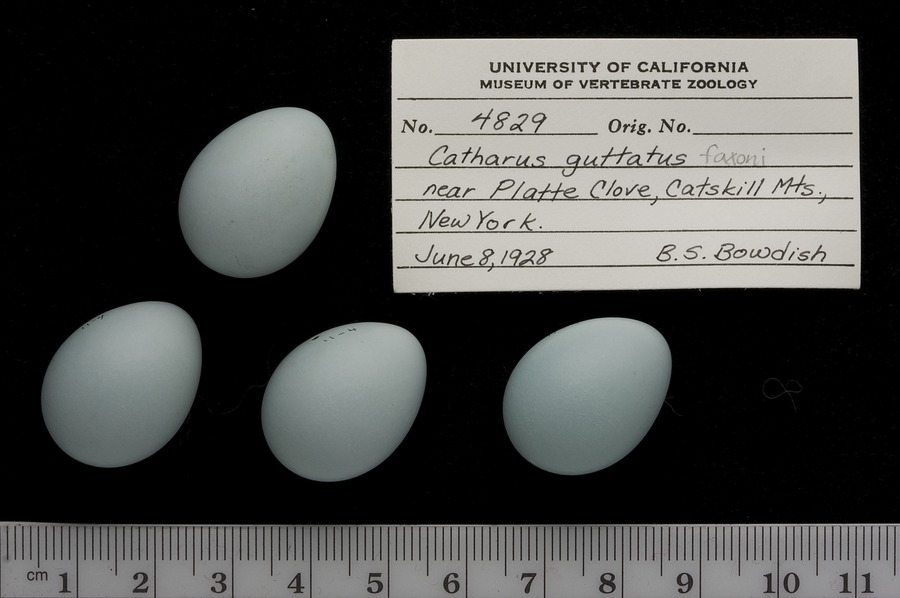 UNIVERSITY OF CALIFORNIA
MUSEUM OF VERTEBRATE ZOOLOGY
No. 4829 Orig. No.
Catharus guttatus faxoni
near Platte Clove, Catskill Mts.,
New York.
June 8, 1928 B. S. Bowdish
11-4
cm 1 2 3 4 5 6 7 8 9 10 11